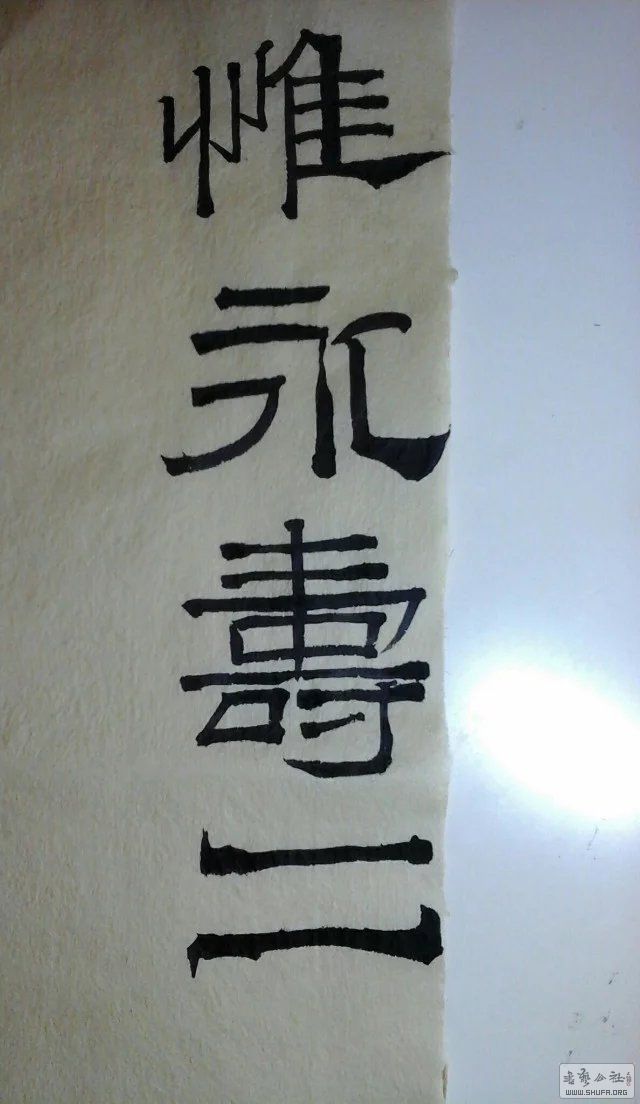 惟永壽二
書藝公社
WWW.SHUFA.ORG